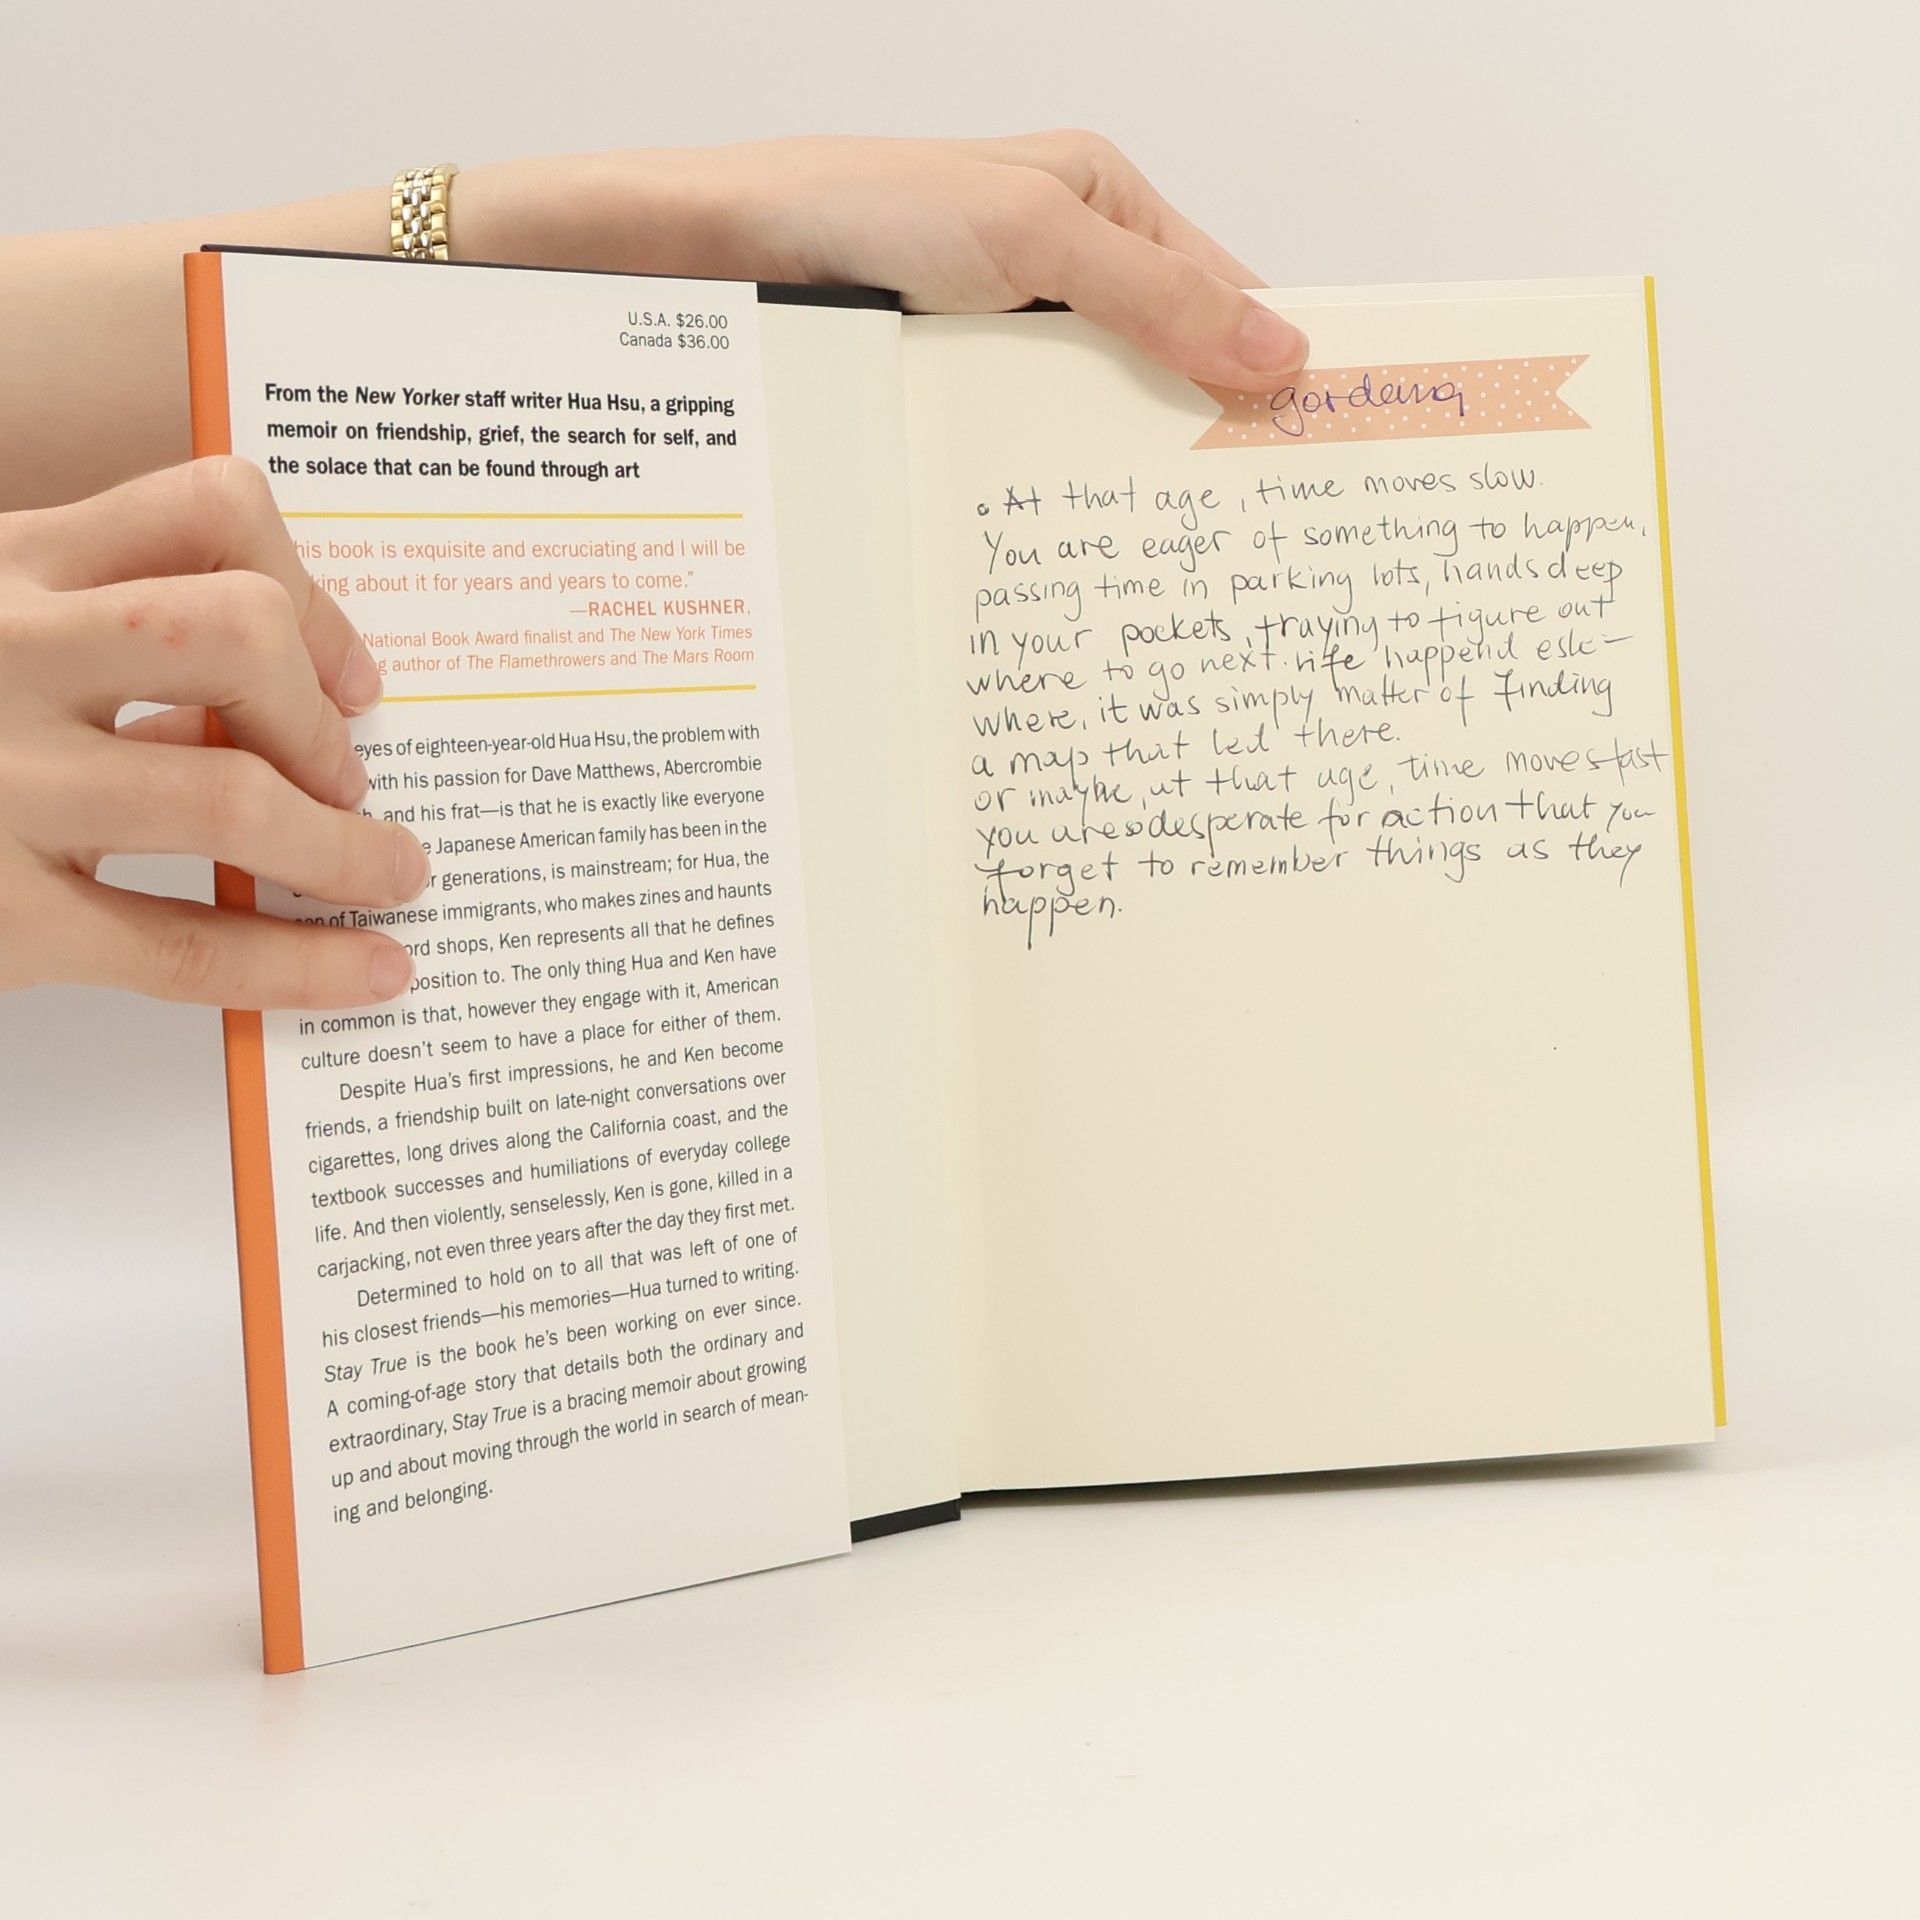 U.S.A. $26.00
Canada $36.00
From the New Yorker staff writer Hua Hsu, a gripping
memoir on friendship, grief, the search for self, and
the solace that can be found through art
his book is exquisite and excruciating and I will be
king about it for years and years to come."
—RACHEL KUSHNER,
National Book Award finalist and The New York Times
g author of The Flamethrowers and The Mars Room
eyes of eighteen-year-old Hua Hsu, the problem with
with his passion for Dave Matthews, Abercrombie
and his frat—is that he is exactly like everyone
e Japanese American family has been in the
r generations, is mainstream; for Hua, the
son of Taiwanese immigrants, who makes zines and haunts
ord shops, Ken represents all that he defines
position to. The only thing Hua and Ken have
in common is that, however they engage with it, American
culture doesn't seem to have a place for either of them.
Despite Hua's first impressions, he and Ken become
friends, a friendship built on late-night conversations over
cigarettes, long drives along the California coast, and the
textbook successes and humiliations of everyday college
life. And then violently, senselessly, Ken is gone, killed in a
carjacking, not even three years after the day they first met.
Determined to hold on to all that was left of one of
his closest friends—his memories—Hua turned to writing.
Stay True is the book he's been working on ever since.
A coming-of-age story that details both the ordinary and
extraordinary, Stay True is a bracing memoir about growing
up and about moving through the world in search of mean-
ing and belonging.
gordana
• At that age, time moves slow.
You are eager of something to happen,
passing time in parking lots, hands deep
in your pockets, traying to figure out
where to go next. Life happend esle-
where, it was simply matter of finding
a map that led there.
or maybe, at that age, time moves fast
you are so desperate for action that you
forget to remember things as they
happen.